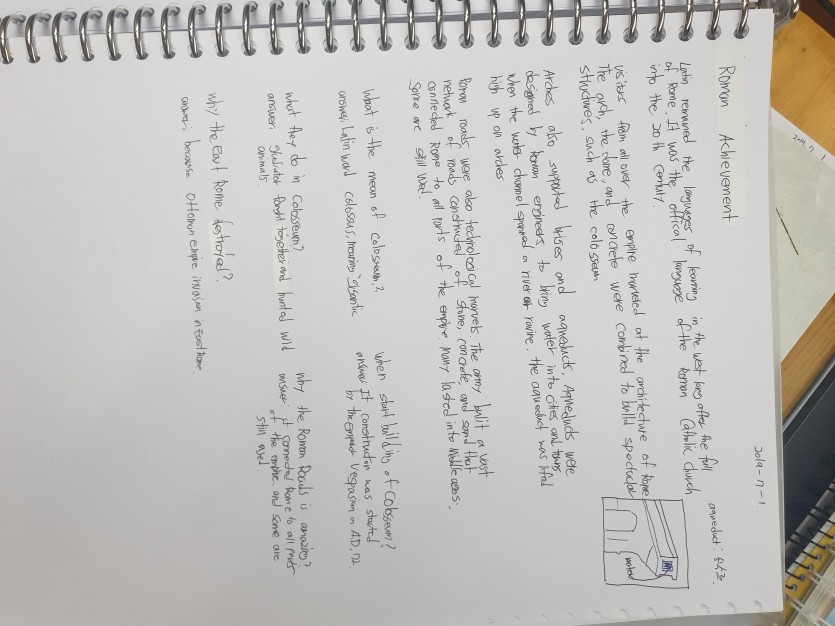 2019-11-1.
Roman Achievement
aqueduct: 수로.
Latin remained the languages of learning in the West long after the fall
of Rome. It was the offical language of the Roman Catholic church
into the 20th century.
visitors from all over the empire marveled at the architecture of Rome
The arch, the dome, and concrete were combined to build spectacular
structures, such as the colosseum
water
Arches also supported brises and aqueducts. Aqueducts were
designed by Roman engineers to bring water into cities and towns
When the water channel spanned a river or ravine, the aqueduct was lifted
high up on arches
Roman roads were also technological marvels The army bulit a vast
network of roads constructed of stone, concrete, and sand that
connected Rome to all parts of the empire Many lasted into Middle ages.
Some are still used.
What is the mean of Colosseum?
answer: Latin word colossus, meaning "gigantic
When start building of Colosseum?
answer: It construction was started
by the emperor Vespasian in A.D. 72.
what they do in Colosseum?
answer: gladiator fought together and hunted wild
animals.
Why the Roman Roads is amazing?
answer: it connected Rome to all parts
of the empire. and some are
still used
Why the East Rome destroyed?
answer: because ottoman empire invasion in East Rome.